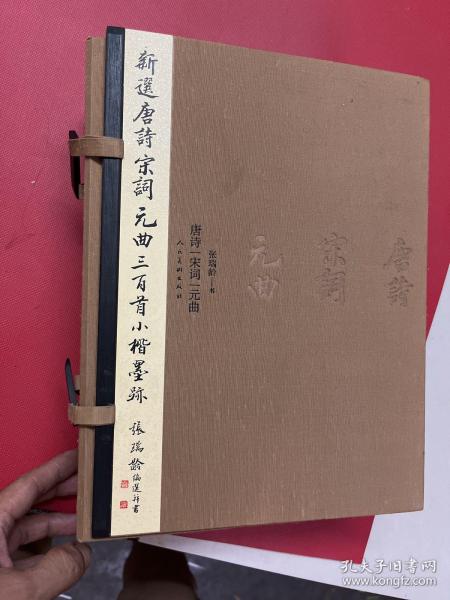 新選唐詩宋詞元曲三百首小楷墨跡
張瑞齡編選并書
唐诗|宋词|元曲
张瑞龄 书
人民美术出版社
唐詩
宋詞
元曲
孔夫子旧书网
www.kongfz.com